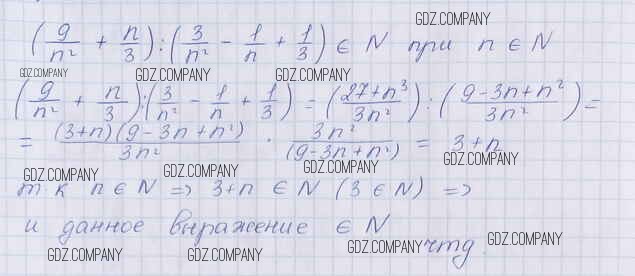 GDZ.COMPANY
(9/n² + n/3) : (3/n² - 1/n + 1/3) ∈ N при n ∈ N
GDZ.COMPANY GDZ.COMPANY GDZ.COMPANY
(9/n² + n/3) : (3/n² - 1/n + 1/3) = (27+n³/3n²) : (9-3n+n²/3n²) =
= (3+n)(9-3n+n²)/3n² · 3n²/(9-3n+n²) = 3+n
GDZ.COMPANY GDZ.COMPANY GDZ.COMPANY GDZ.COMPANY
т.к n ∈ N => 3+n ∈ N (3 ∈ N) =>
и данное выражение ∈ N
GDZ.COMPANY GDZ.COMPANY GDZ.COMPANY чтд. GDZ.COMPANY